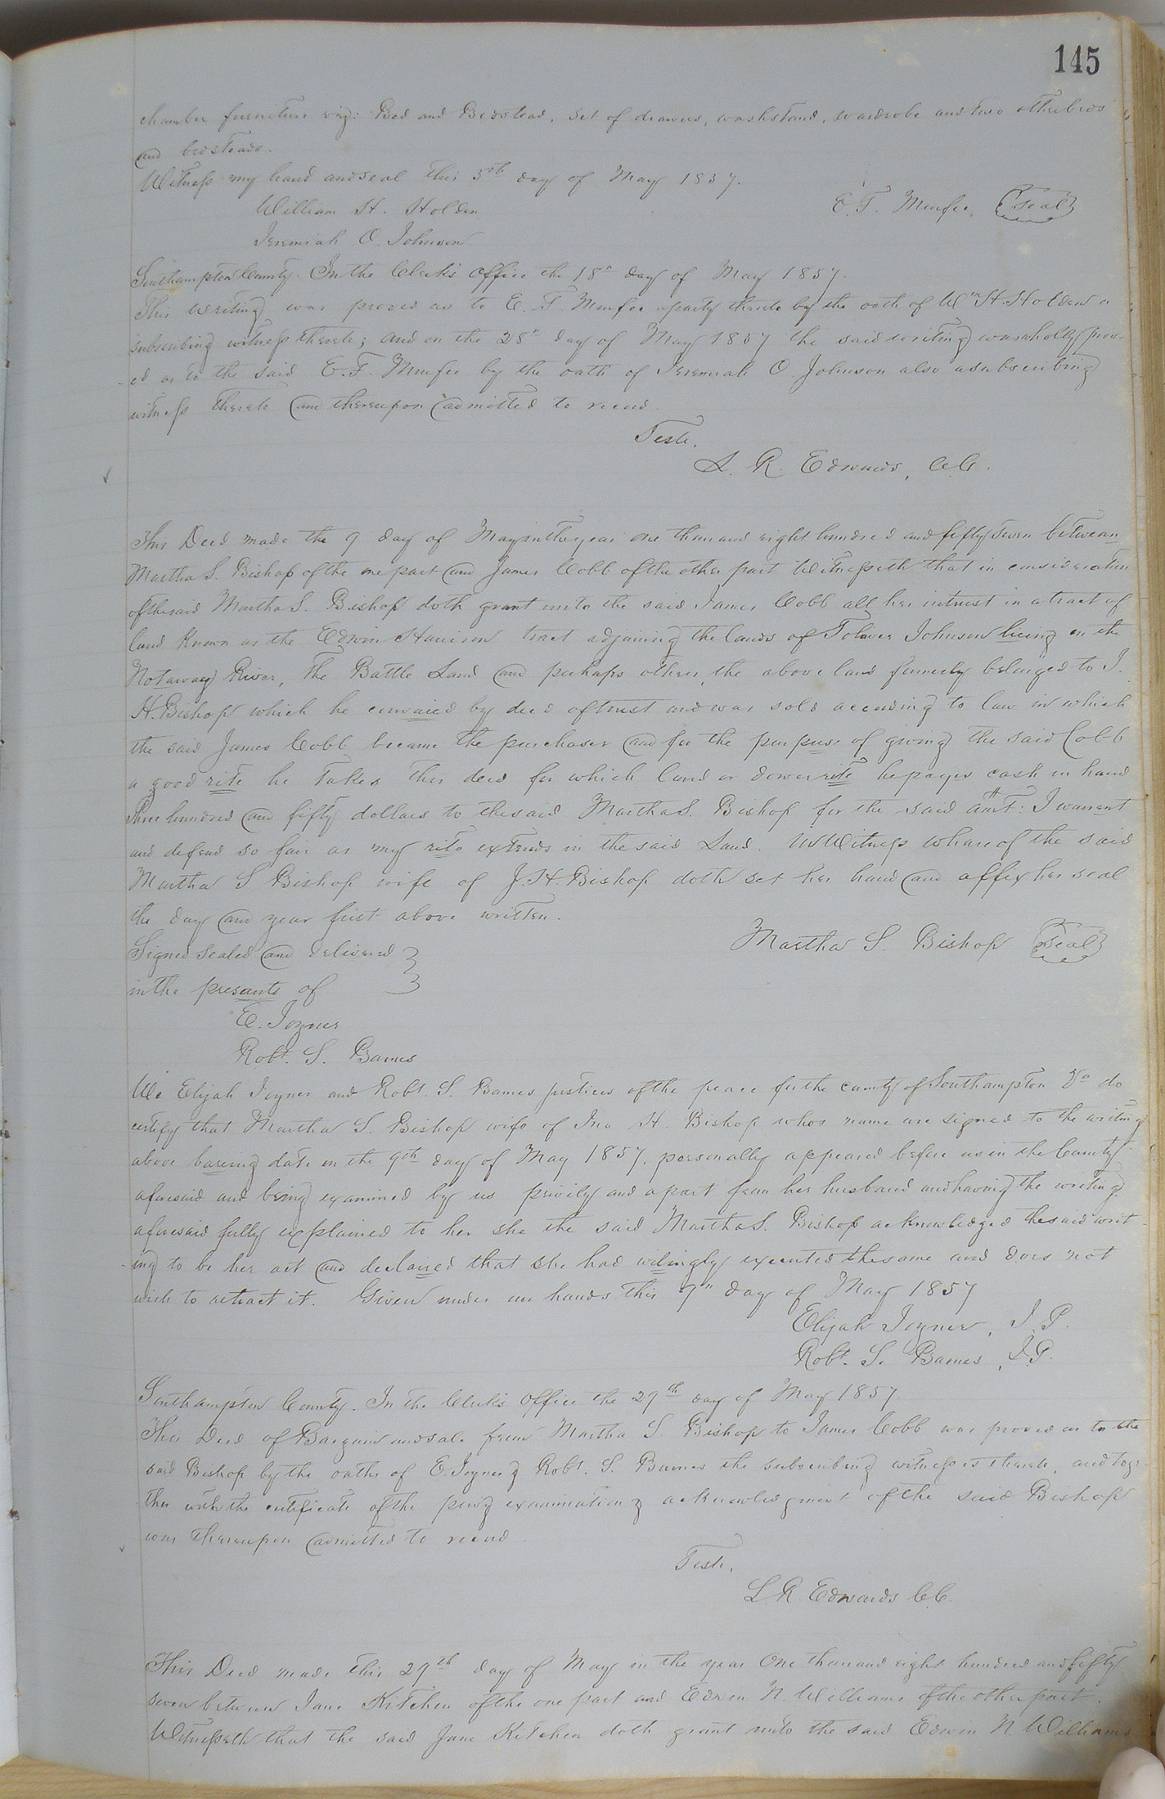 145
chamber furniture viz: Bed and Bedstead, set of drawers, washstand, wardrobe and two other beds
and bedsteads.
Witness my hand and seal this 5th day of May 1857.
William H. Holden E. F. Murfee, (Seal)
Jeremiah O. Johnson
Southampton County. In the Clerk's office the 18th day of May 1857.
This writing was proved as to E. F. Murfee a party thereto by the oath of Wm H. Holden a
subscribing witness thereto; and on the 28th day of May 1857 the said writing was wholly prov-
-ed as to the said E. F. Murfee by the oath of Jeremiah O. Johnson also a subscribing
witness thereto and thereupon admitted to record.
Teste.
L. R. Edwards, C.C.
This Deed made the 9 day of May in the year one thousand eight hundred and fifty seven between
Martha S. Bishop of the one part and James Cobb of the other part Witnesseth that in consideration
of the said Martha S. Bishop doth grant unto the said James Cobb all her intrust in a tract of
land known as the Edwin Harrison tract adjoining the lands of Toliver Johnson lieing on the
Notaway River, The Battle Land and perhaps others, the above land formerly belonged to J.
H. Bishop which he convaied by deed of trust and was sold according to law in which
the said James Cobb became the purchaser and for the purpuse of giving the said Cobb
a good rite he takes this deed for which land or dower rite he payes cash in hand
Three hundred and fifty dollars to the said Martha S. Bishop for the said amt: I warrant
and defend so far as my rite extends in the said Land. In Witness whareof the said
Martha S Bishop wife of J. H. Bishop doth set her hand and affix her seal
the day and year first above written.
Signed sealed and delivered } Martha S. Bishop (Seal)
in the presants of }
E. Joyner
Robt. S. Barnes
We Elijah Joyner and Robt. S. Barnes justices of the peace for the county of Southampton Va do
certify that Martha S. Bishop wife of Jno H. Bishop whos name are signed to the writing
above baring date on the 9th day of May 1857, personally appeared before us in the County
aforesaid and being examined by us privily and apart from her husband and having the writing
aforesaid fully explained to her she the said Martha S. Bishop acknowledged the said writ-
-ing to be her act and declaied that she had wilingly executed the same and does not
wish to retract it. Given under our hands this 9th day of May 1857
Elijah Joyner, J.P.
Robt. S. Barnes, J.P.
Southampton County. In the Clerk's Office the 29th day of May 1857
This Deed of Bargain and sale from Martha S. Bishop to James Cobb was proved as to the
said Bishop by the oaths of E. Joyner & Robt. S. Barnes the subscribing witnesses thereto, and toge-
ther with the certificate of the privy examination & acknowledgment of the said Bishop
was thereupon admitted to record.
Teste,
L R. Edwards C.C.
This Deed made this 29th day of May in the year One thousand eight hundred and fifty
seven between Jane Kitchen of the one part and Edwin N. Williams of the other part.
Witnesseth that the said Jane Kitchen doth grant unto the said Edwin N. Williams